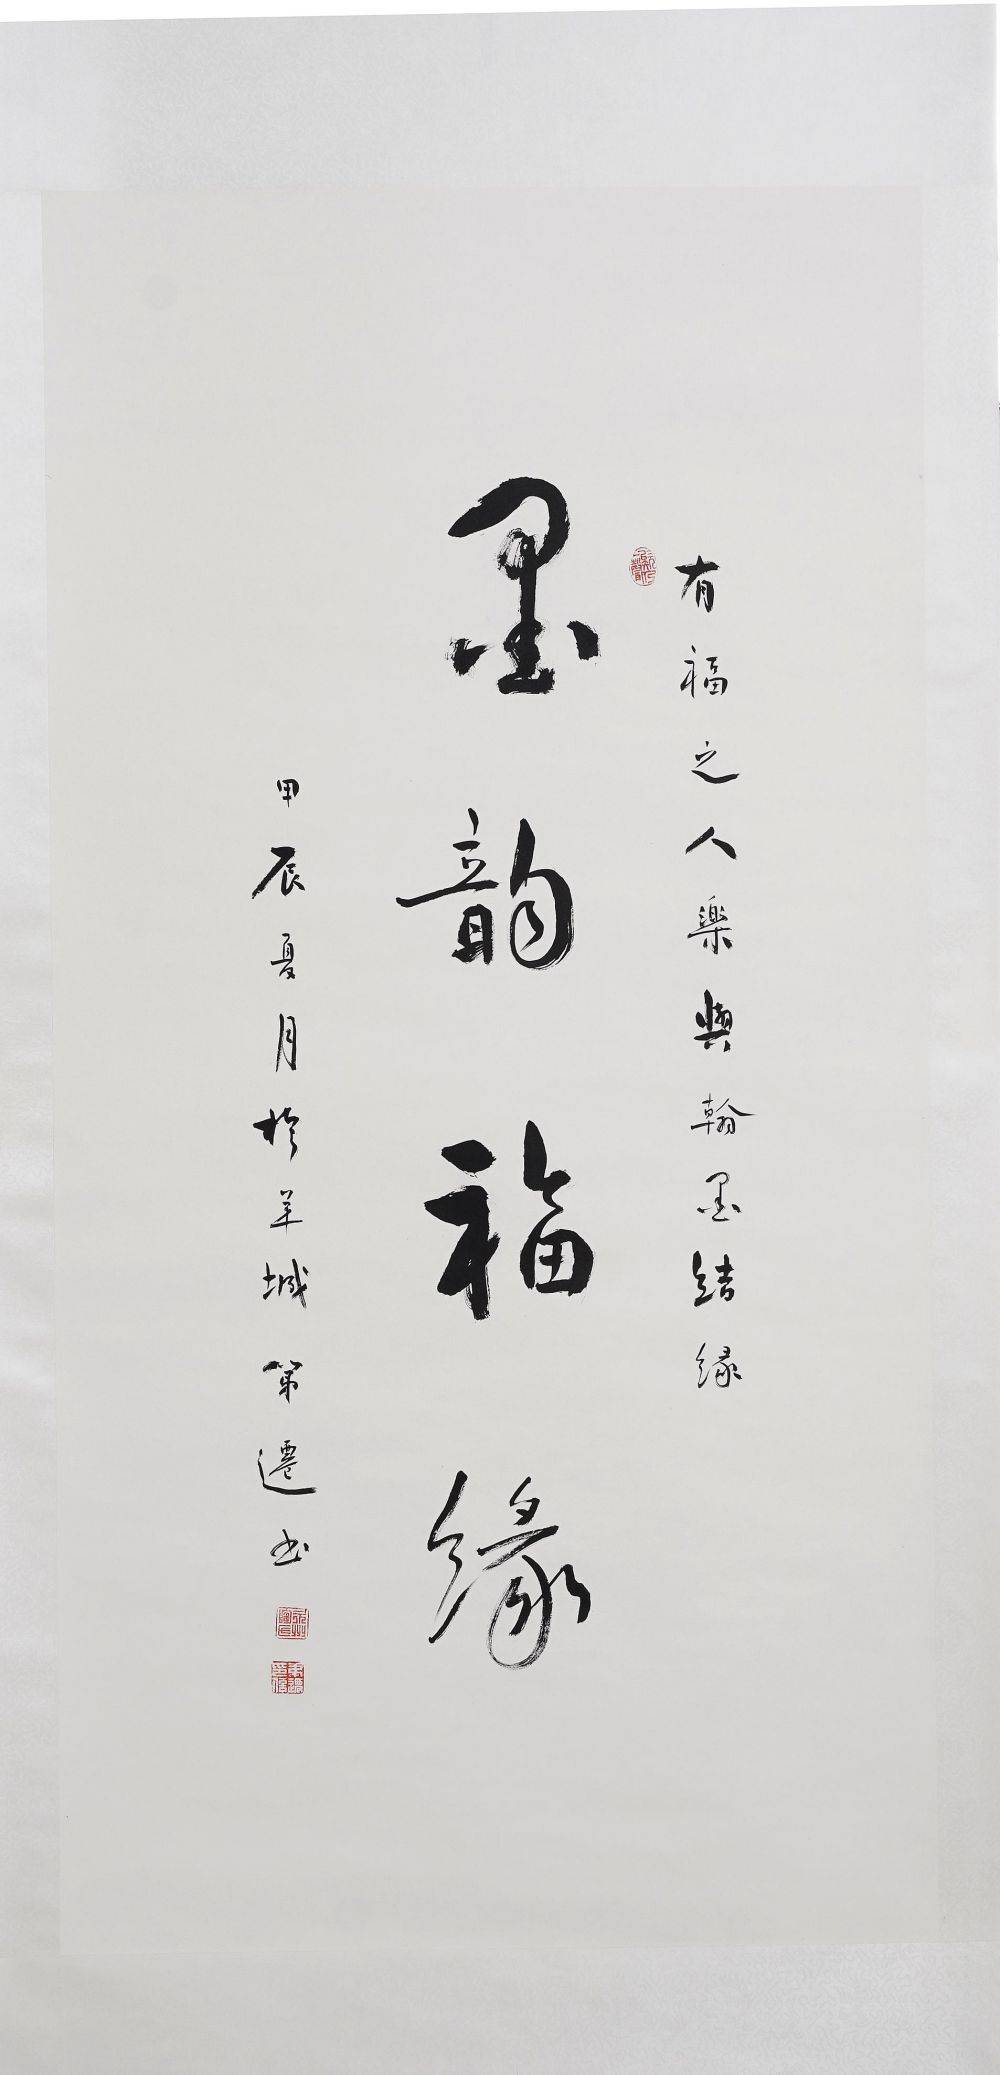 有福之人樂與翰墨結緣
墨韵福緣
甲辰夏月於羊城第遷书